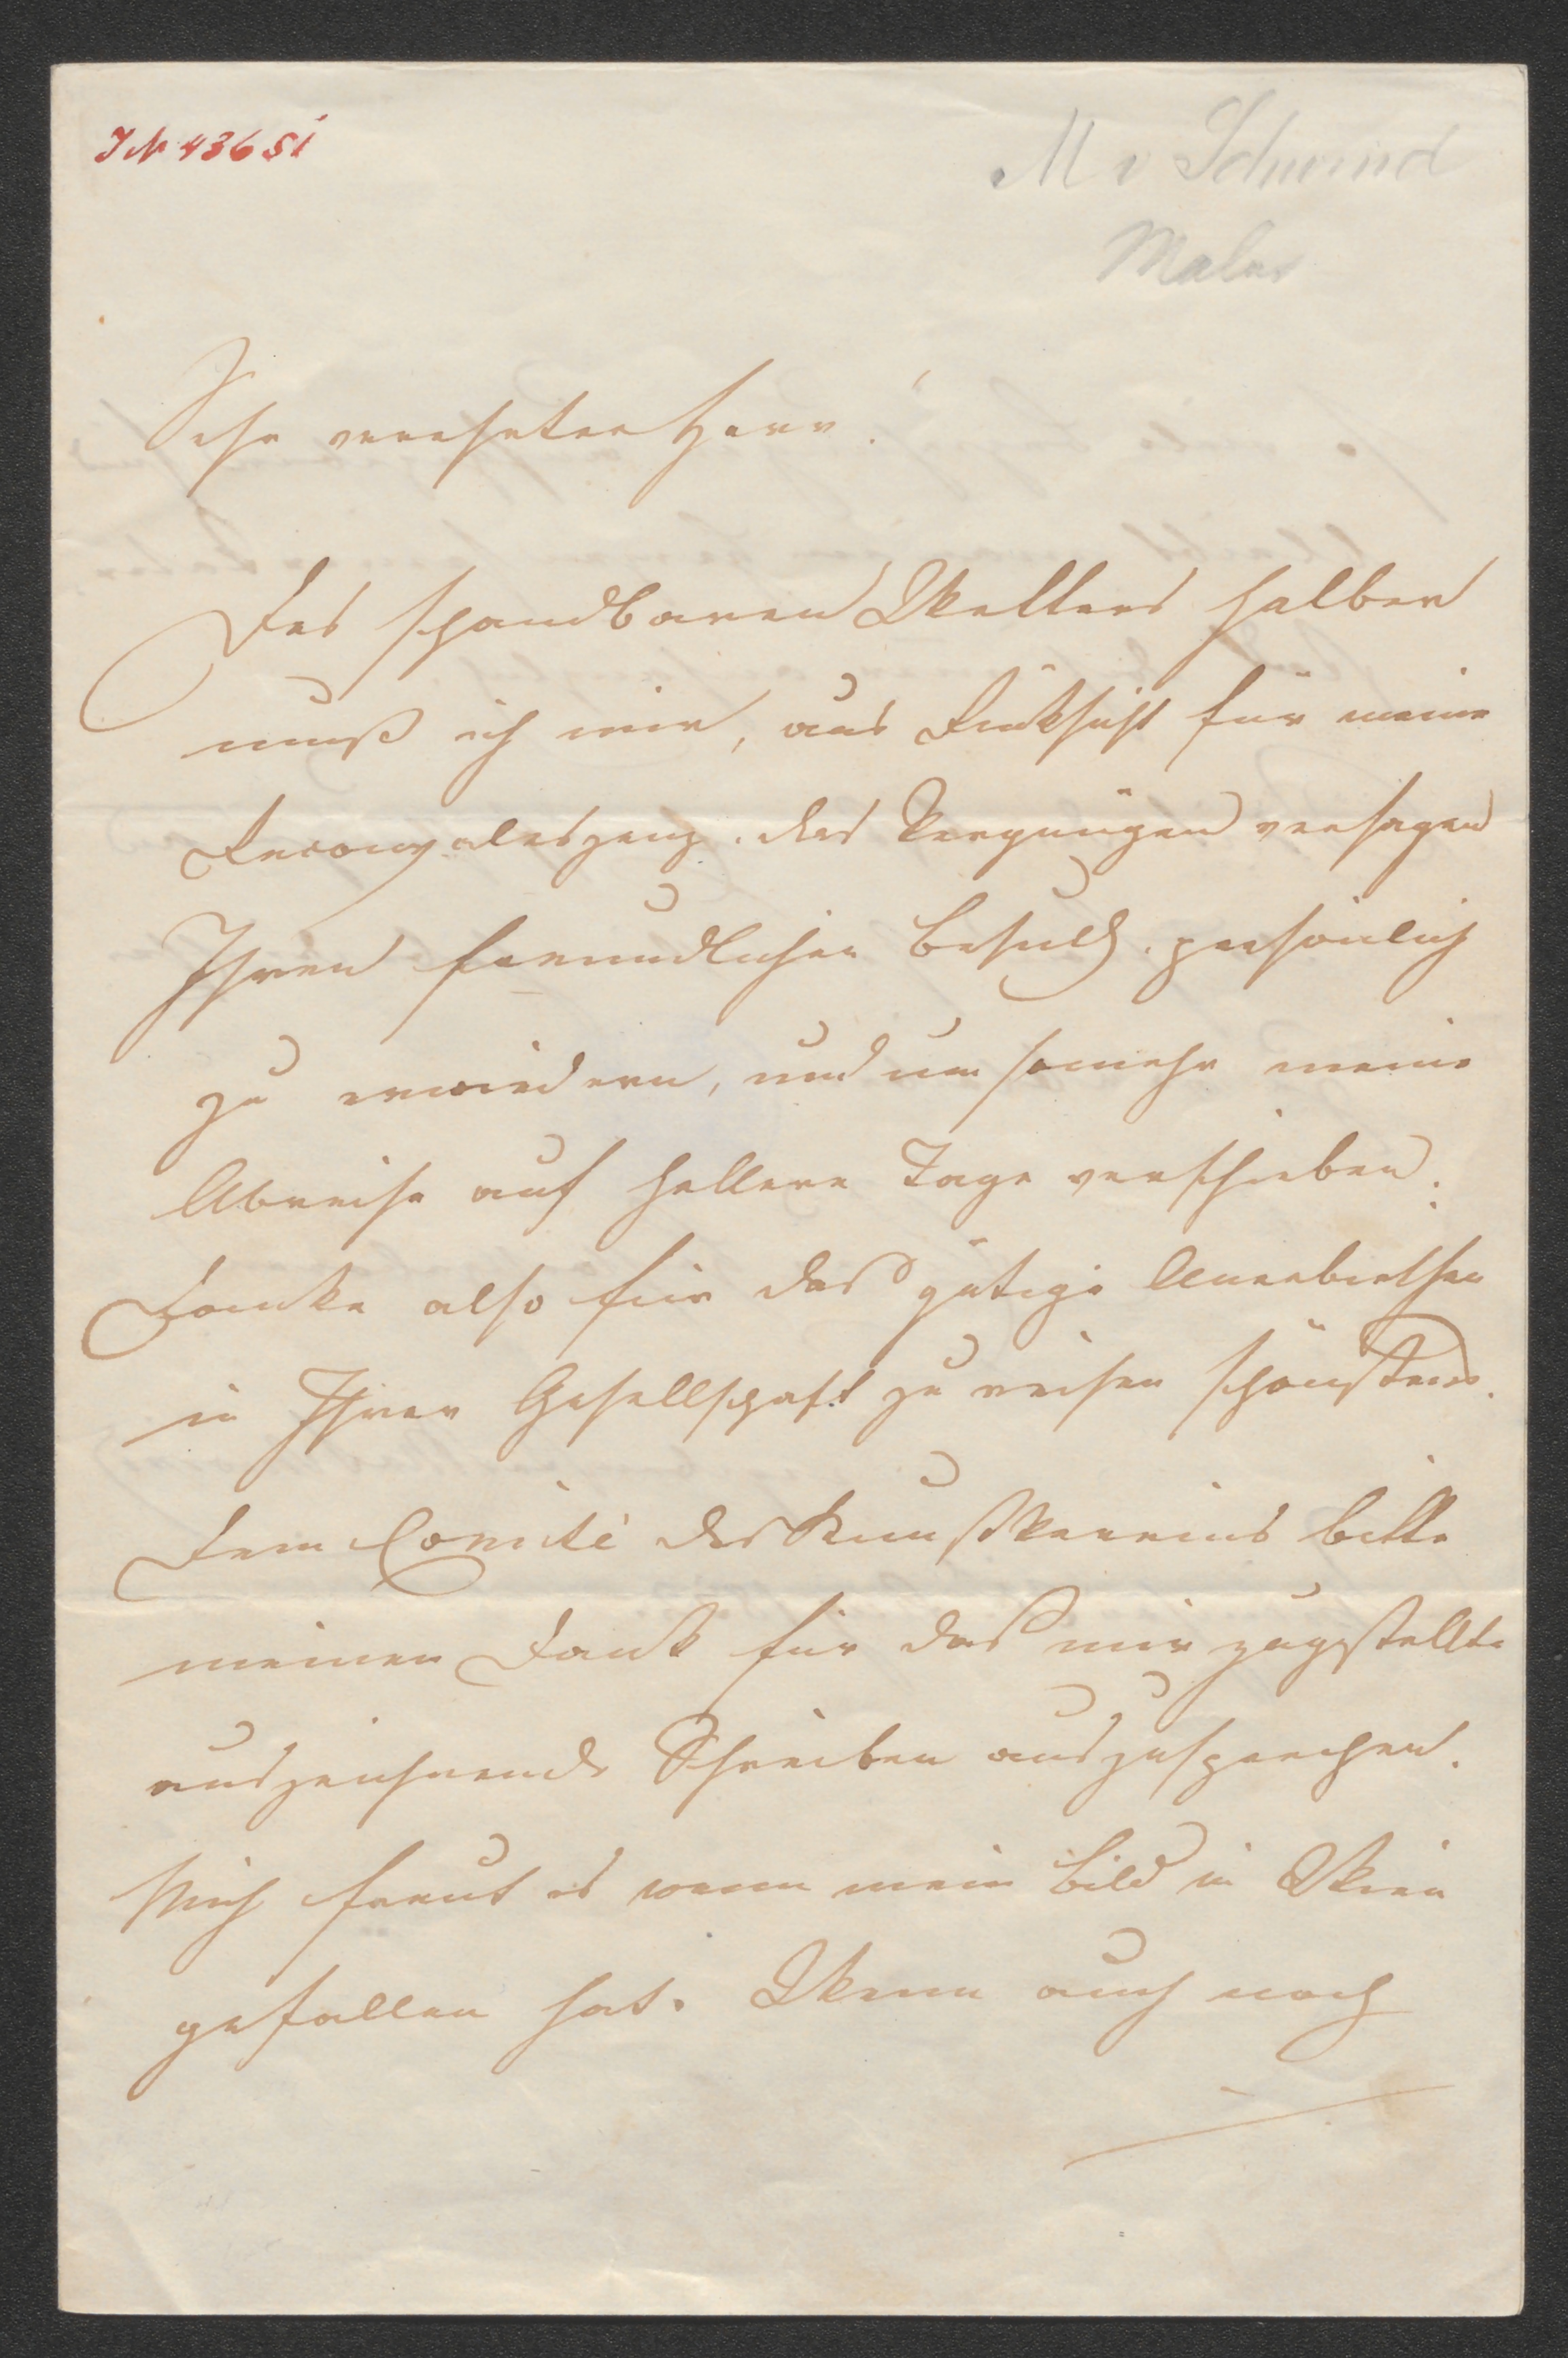 IN 43651
M v Schwind
Maler
Sehr verehrter Herr!
Des schandbaren Wetters halber
muß ich mir, aus Rüksicht für meine
Reconvaleszenz. das Vergnügen versagen
Ihren freundlichen Besuch. persönlich
zu erwiedern, und um somehr meine
Abreise auf hellere Tage verschieben.
Danke also für das gütige Anerbiethen
in Ihrer Gesellschaft zu reisen schönstens.
Dem Comité des Kunstvereins bitte
meinen Dank für das mir zugestellte
auszeichnende Schreiben auszusprechen.
Mich freut es wenn mein Bild in Wien
gefallen hat. Wenn auch noch